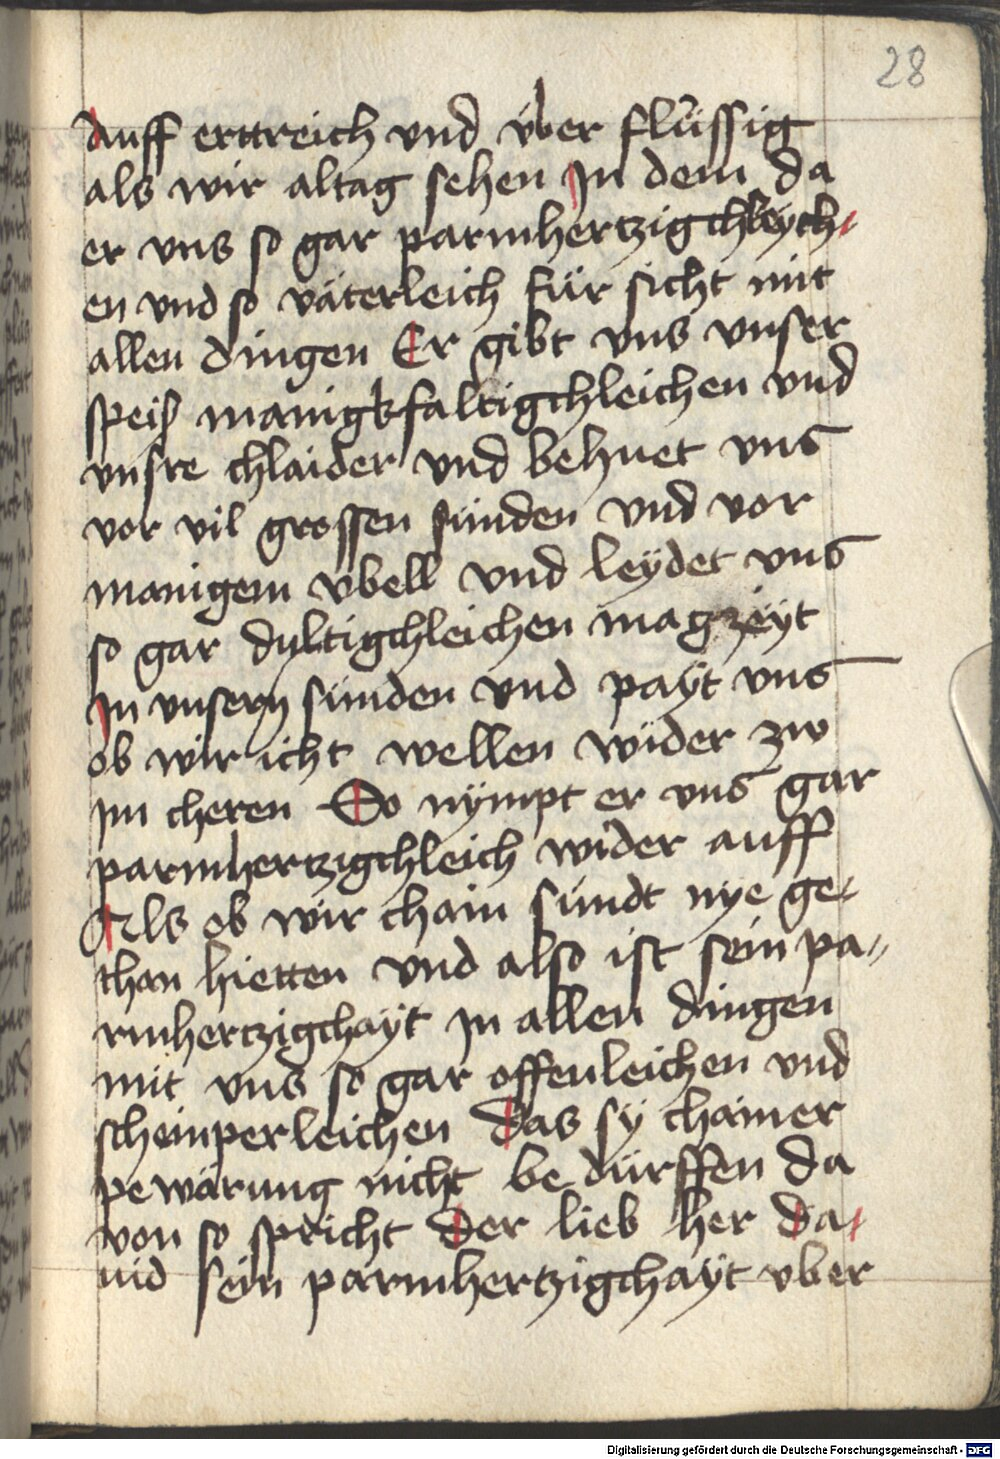 28
Auff erttreich vnd vber flüssig
als wir altag sehen In dem da
er vns so gar parmhertzigchleych-
en vnd so väterleich für sicht mit
allen dingen Er gibt vns vnser
speis manigkfaltigchleichen vnd
vnsre chlaider vnd behuet vns
vor vil grossen sünden vnd vor
manigem vbell vnd leydet vns
so gar dultigchleichen magzeyt
In vnsern sünden vnd payt vns
ob wir icht wellen wider zw
im cheren So nympt er vns gar
parmhertzigchleich wider auff
Als ob wir chain sündt nye ge-
than hietten vnd also ist sein pa-
rmhertzigchayt in allen dingen
mit vns so gar offenleichen vnd
scheinperleichen das sy chainer
pewärung nicht be dürffen da
von so spricht der lieb her da-
uid sein parmhertzigchayt vber
Digitalisierung gefördert durch die Deutsche Forschungsgemeinschaft - DFG